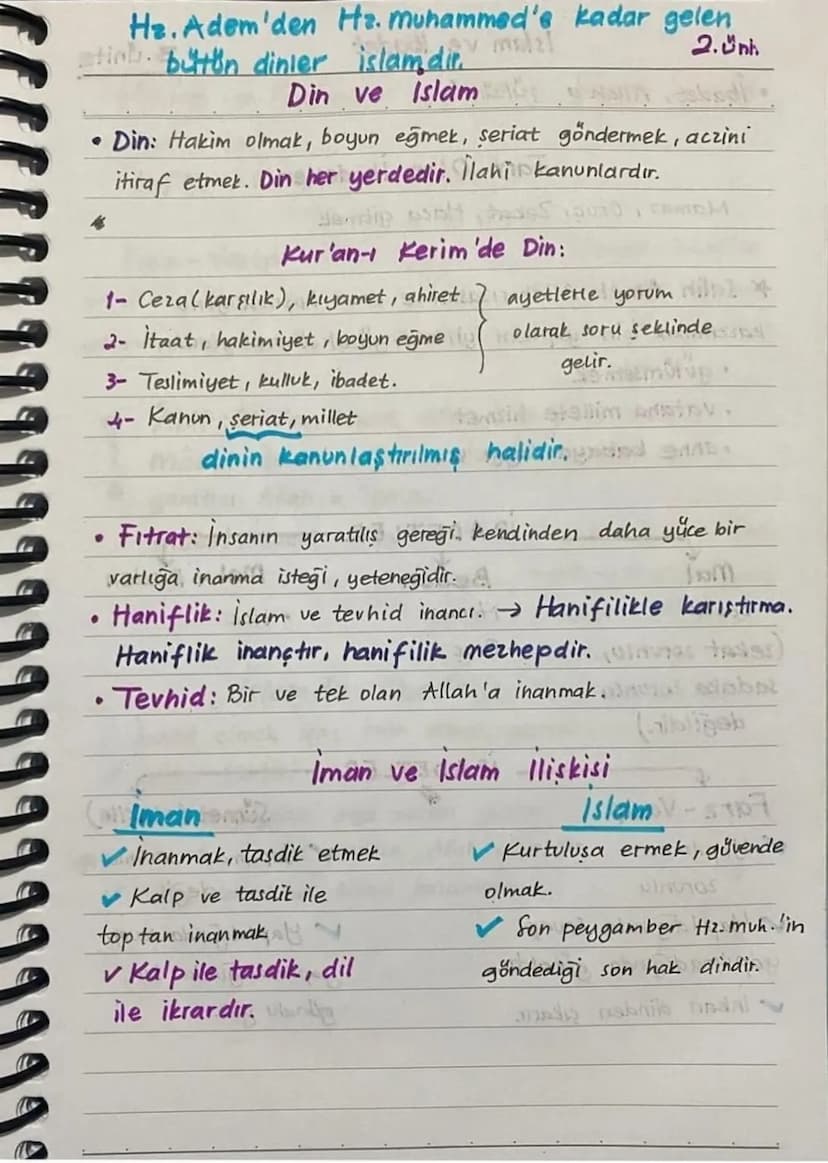 Hz. Adem'den Hz. Muhammed'e kadar gelen
bütün dinler islamdır.
2. Ünt.
Din ve İslam
• Din: Hakim olmak, boyun eğmek, şeriat göndermek, aczini
itiraf etmek. Din her yerdedir. İlahi kanunlardır.
Kur'an-ı Kerim'de Din:
1- Ceza (karşılık), kıyamet, ahiret
2- İtaat, hakimiyet, boyun eğme
3- Teslimiyet, kulluk, ibadet.
ayetlerle yorum
olarak soru şeklinde
gelir.
4- Kanun, şeriat, millet
dinin kanunlaştırılmış halidir.
• Fıtrat: İnsanın yaratılış gereği kendinden daha yüce bir
varlığa inanma isteği, yeteneğidir.
• Haniflik: İslam ve tevhid inancı. → Hanifilikle karıştırma.
Haniflik inançtır, hanifilik mezhepdir.
• Tevhid: Bir ve tek olan Allah'a inanmak.
İman ve İslam İlişkisi
İman
✓ İnanmak, tasdik etmek
✓ Kalp ve tasdik ile
toptan inanmak
✓ Kalp ile tasdik, dil
ile ikrardır.
İslam
✓ Kurtuluşa ermek, güvende
olmak.
✓ Son peygamber Hz. muh.'in
göndediği son hak dindir.